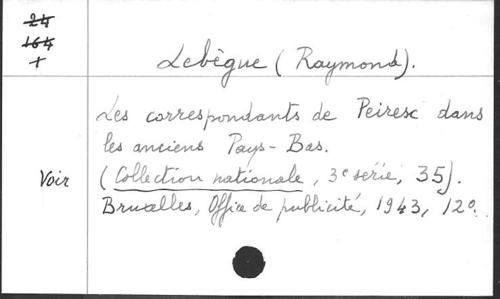 24
164
+
Lebègue (Raymond).
Les correspondants de Peiresc dans
les anciens Pays-Bas.
Voir
(Collection nationale, 3e série, 35).
Bruxelles, Office de publicité, 1943, 12º.